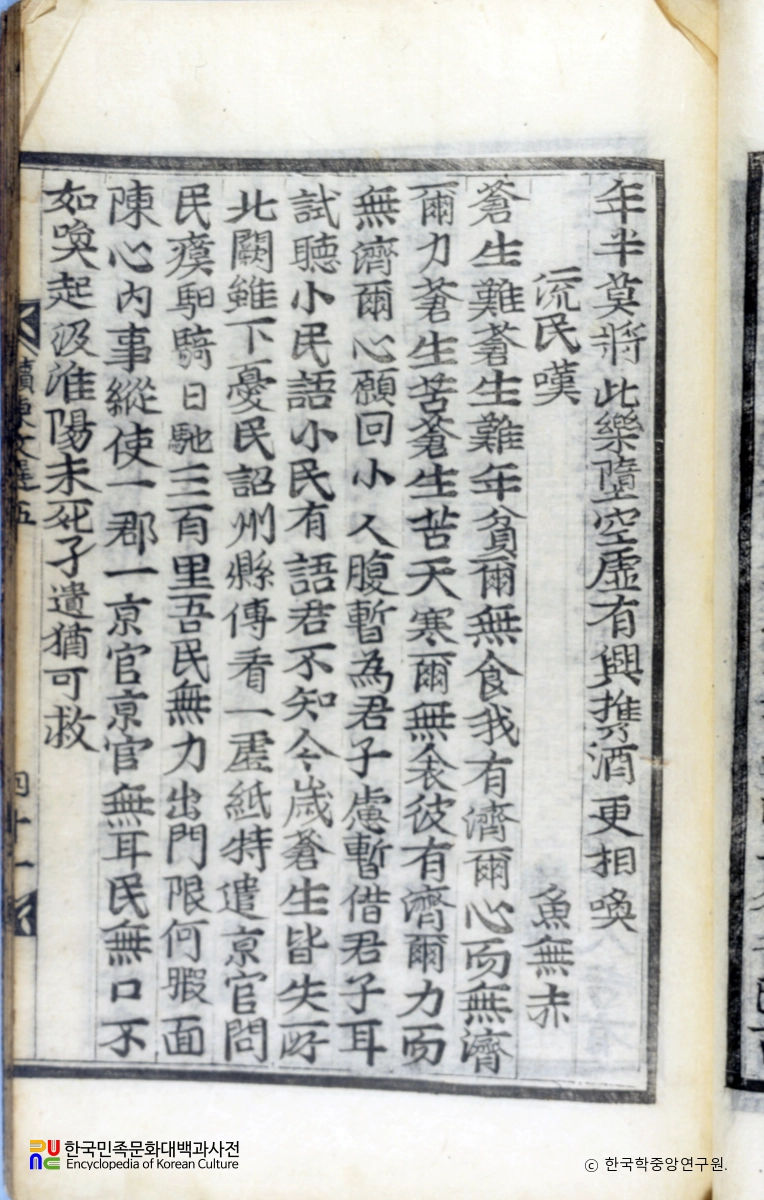 年半莫將此樂墮空虛有興携酒更相喚
流民嘆 魚無赤
蒼生難蒼生難年貧爾無食我有濟爾心而無濟
爾力蒼生苦蒼生苦天寒爾無衾彼有濟爾力而
無濟爾心願回小人腹暫為君子慮暫借君子耳
試聽小民語小民有語君不知今歲蒼生皆失所
北闕雖下憂民詔州縣傳看一虛紙特遣京官問
民瘼馹騎日馳三百里吾民無力出門限何暇面
陳心內事縱使一郡一京官京官無耳民無口不
如喚起汲淮陽未死孑遺猶可救
續東文選五
四十一
한국민족문화대백과사전
Encyclopedia of Korean Culture
© 한국학중앙연구원.